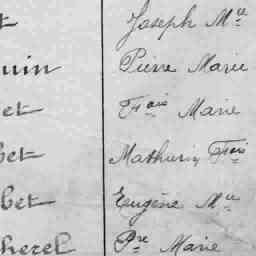 t Joseph Mie
uin Pierre Marie
et Fois Marie
bet Mathurin Fois
bet Eugène Mie
herel Pre Marie